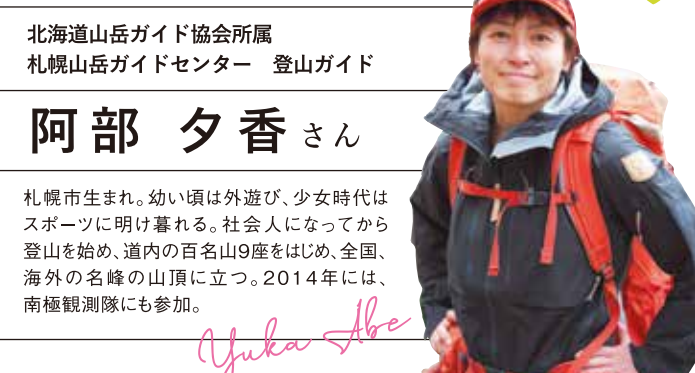 北海道山岳ガイド協会所属
札幌山岳ガイドセンター　登山ガイド
阿部 夕香さん
札幌市生まれ。幼い頃は外遊び、少女時代は
スポーツに明け暮れる。社会人になってから
登山を始め、道内の百名山9座をはじめ、全国、
海外の名峰の山頂に立つ。2014年には、
南極観測隊にも参加。
Yuka Abe